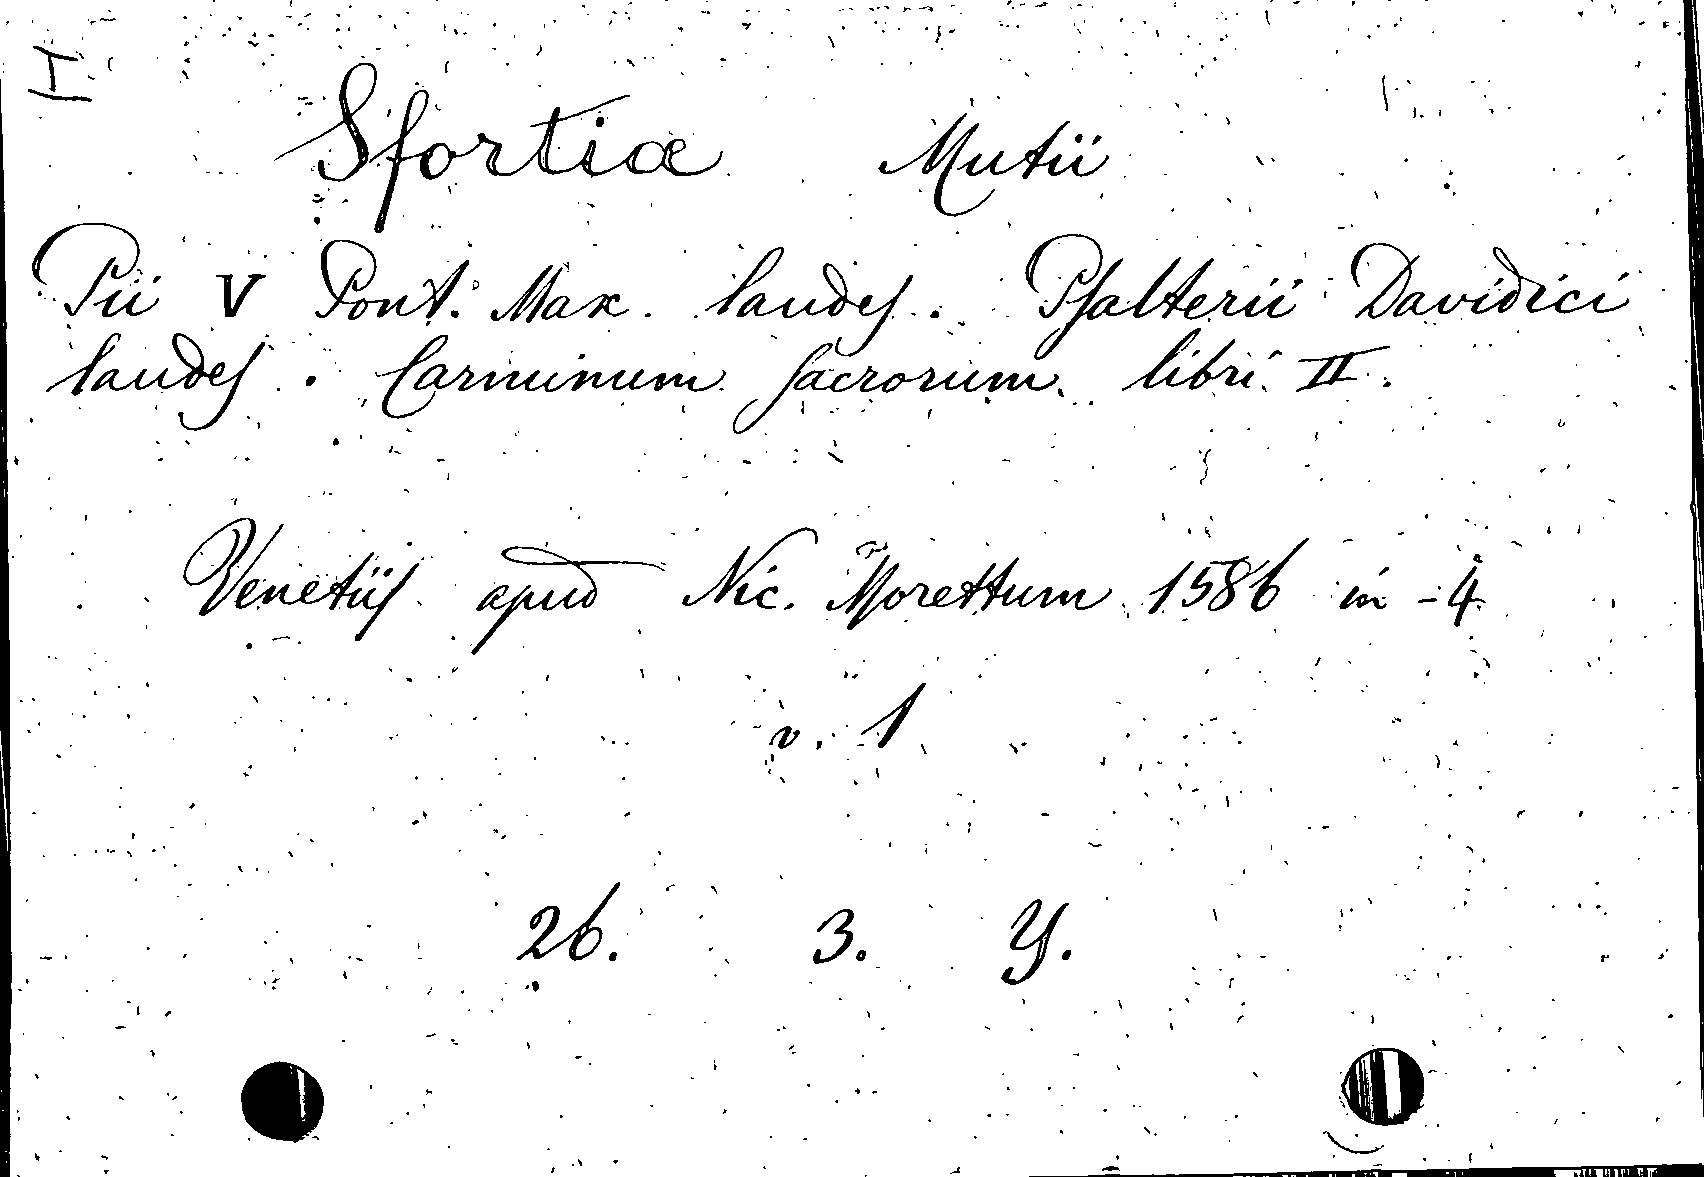 I
Sfortiæ Mutii
Pii V Pont. Max. laudes. Psalterii Davidici
laudes. Carminum sacrorum libri II.
Venetiis apud Nic. Morettum 1586 in-4
v. 1
26. 3. Y.